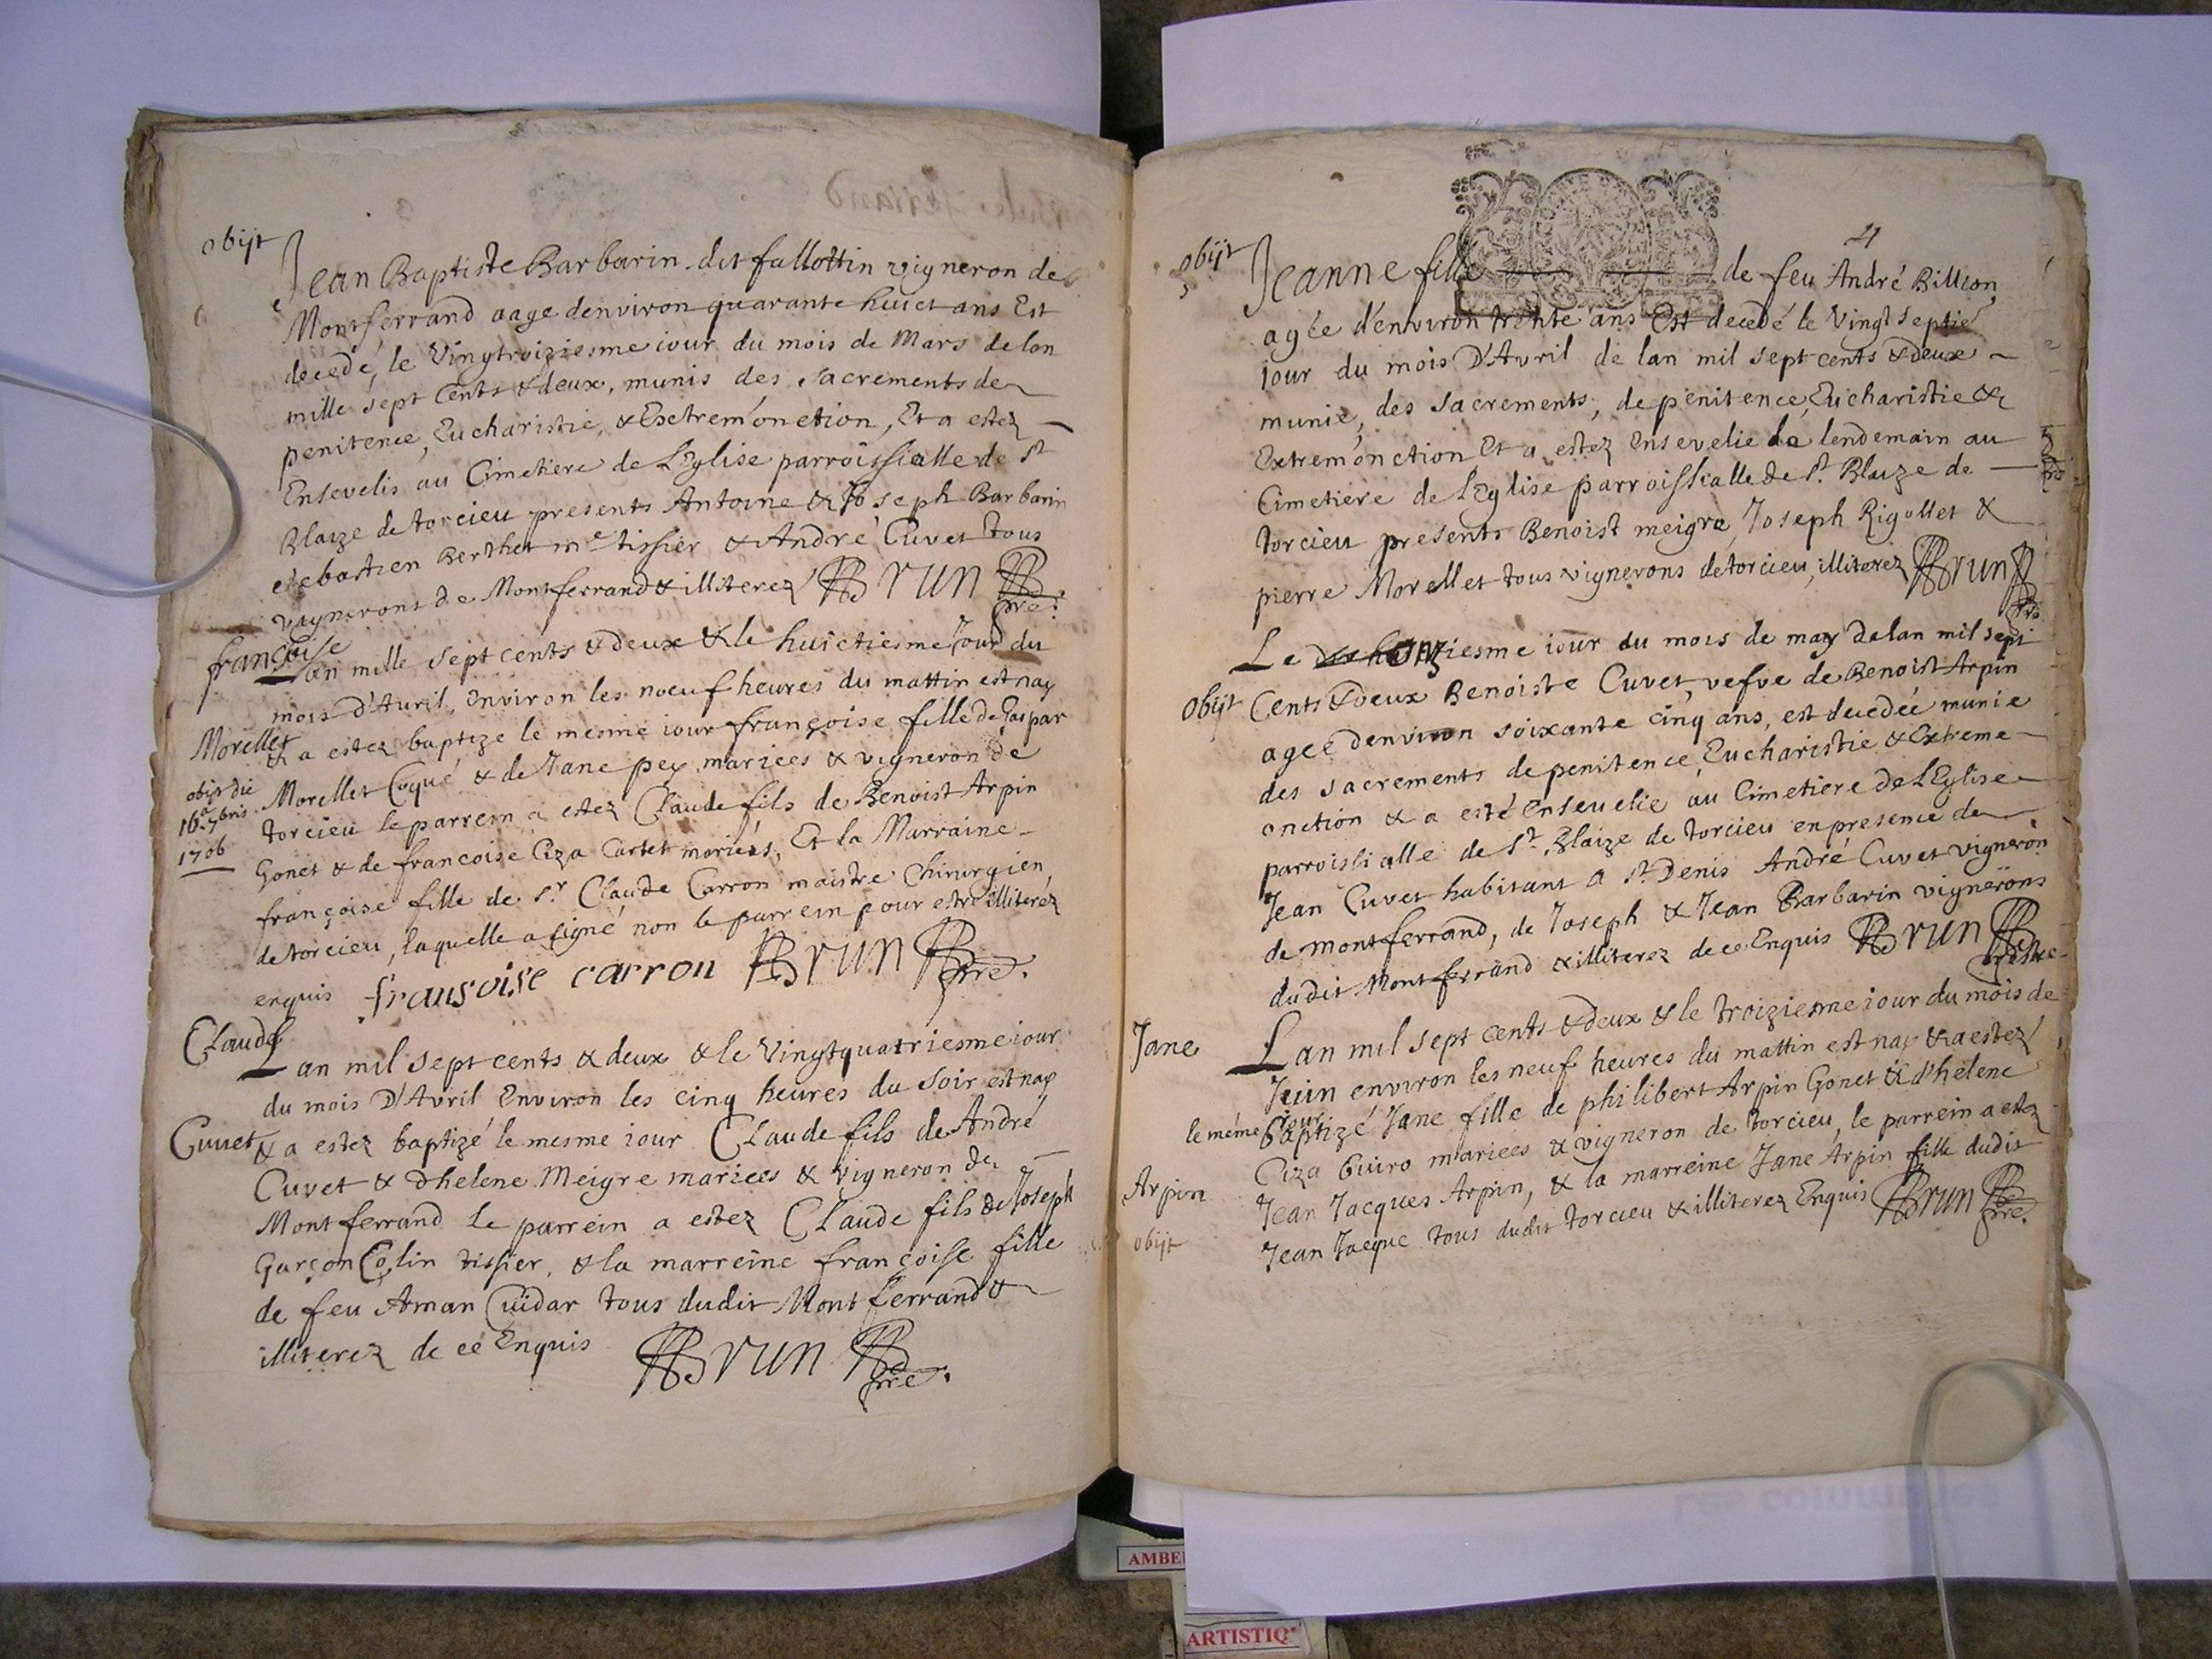 obijt
Jean Baptiste Barbarin dit fallottin vigneron de
Montferrand aage denviron quarante huict ans Est
decedé, le Vingtroiziesme iour du mois de Mars de lan
mille sept cents & deux, munis des sacrements de
penitence, Eucharistie, & Extrem'onction, Et a estez
Ensevelis au Cimetiere de L'Eglise parroissialle de St
Blaize de torcieu presents Antoine & Joseph Barbarin
Sebastien Berthet me tissier & André Cuvet tous
vignerons de Montferrand & illiterez Brun
pre.
françoise
Lan mille sept cents & deux & le huictiesme Jour du
mois d'Avril, Environ les noeuf heures du mattin est nay
Morellet
& a estez baptize le mesme iour françoise fille de Gaspar
Morellet Coqué & de Jane pey mariees & vigneron de
obijt die
16a 7bris
1706
torcieu le parrein a estez Claude fils de Benoist Arpin
Gonet & de francoise Ciza Cartet mariées, Et la Marraine
françoise fille de Sr Claude Carron maistre Chirurgien
de torcieu, laquelle a signé non le parrein pour estre illiteréz
enquis fransoise carron Brun
pre.
Claude
Lan mil sept cents & deux & le Vingtquatriesme iour
du mois D'Avril Environ les cinq heures du soir est nay
Cuvet
& a estez baptizé le mesme iour Claude fils de André
Cuvet & dhelene Meigre mariees & vigneron de
Montferrand Le parrein a estez Claude fils de Joseph
Garçon Colin tissier, & la marreine françoise fille
de feu Aman Cuidar tous dudit Montferrand &
illiterez de ce Enquis Brun
pre.
4
obijt
Jeanne fille de feu André Billion,
agée d'environ trente ans Est decedé le Vingt septie
iour du mois D'Avril de lan mil sept cents & deux
munie, des sacrements, de penitence, Eucharistie &
Extrem'onction Et a estez Ensevelie le lendemain au
Cimetiere de L'Eglise parroissialle de St. Blaize de
torcieu presents Benoist meigre, Joseph Rigollet &
pierre Morellet tous vignerons de torcieu, illiterez Brun
Le onziesme iour du mois de may de lan mil sept
obijt
Cents & deux Benoiste Cuvet, vefve de Benoist Arpin
agee denviron soixante cinq ans, est decedée munie
des sacrements de penitence, Eucharistie & Extreme
onction & a esté Ensevelie au Cimetiere de L'Eglise
parroissialle de St. Blaize de torcieu en presence de
Jean Cuvet habitant a St Denis André Cuvet vigneron
de montferrand, de Joseph & Jean Barbarin vignerons
dudit Montferrand & illiterez de ce Enquis Brun
prestre
Jane
Lan mil sept cents & deux & le troiziesme iour du mois de
Juin environ les neuf heures du mattin est nay & a estez
le méme jour
baptizé Jane fille de philibert Arpin Gonet & d'helene
Ciza Guiro mariees & vigneron de torcieu, le parrein a estez
Arpin
Jean Jacques Arpin, & la marreine Jane Arpin fille dudit
obijt
Jean Jacque tous dudit torcieu & illiterez Enquis Brun
pre.
AMBE
ARTISTIQ